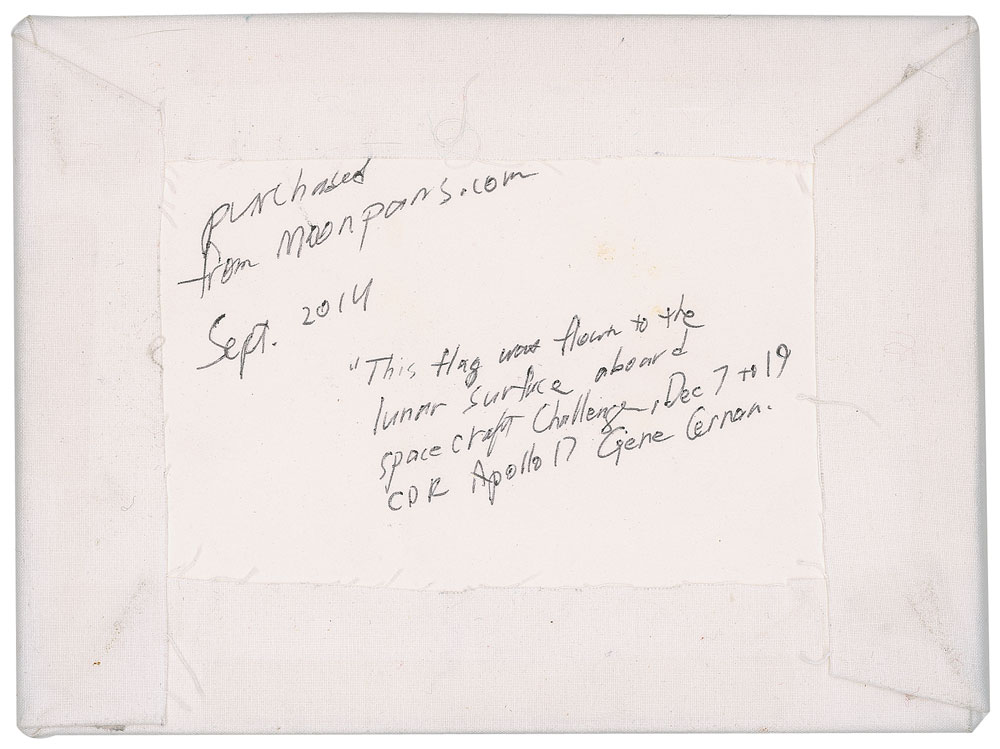 purchased
from Moonpans.com
Sept. 2014
"This flag was flown to the
lunar surface aboard
spacecraft Challenger, Dec 7 to 19
CDR Apollo 17 Gene Cernan.